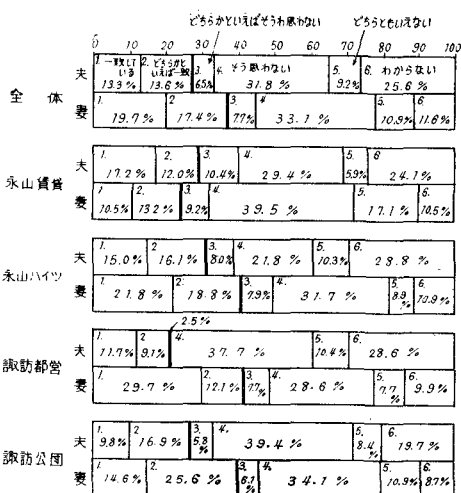 どちらかといえばそうわ思わない どちらともいえない
0 10 20 30 40 50 60 70 80 90 100
全体
夫 1.一致している 13.3% 2.どちらかといえば一致 13.6% 3. 6.5% 4. そう思わない 31.8% 5. 9.2% 6. わからない 25.6%
妻 1. 19.7% 2. 17.4% 3. 7.7% 4. 33.1% 5. 10.9% 6. 11.6%
永山賃貸
夫 1. 17.2% 2. 12.0% 3. 10.4% 4. 29.4% 5. 5.9% 6 24.1%
妻 1. 10.5% 2. 13.2% 3. 9.2% 4. 39.5% 5. 17.1% 6. 10.5%
永山ハイツ
夫 1. 15.0% 2 16.1% 3. 8.0% 4. 21.8% 5. 10.3% 6. 28.8%
妻 1. 21.8% 2. 18.8% 3. 7.9% 4. 31.7% 5. 8.9% 6. 10.9%
2.5%
諏訪都営
夫 1. 11.7% 2 9.1% 4. 37.7% 5. 10.4% 6. 28.6%
妻 1. 29.7% 2. 12.1% 3. 7.7% 4. 28.6% 5. 7.7% 6. 9.9%
諏訪公団
夫 1. 9.8% 2 16.9% 3. 5.8% 4. 39.4% 5. 8.4% 6. 19.7%
妻 1. 14.6% 2. 25.6% 3. 6.1% 4. 34.1% 5. 10.9% 6. 8.7%